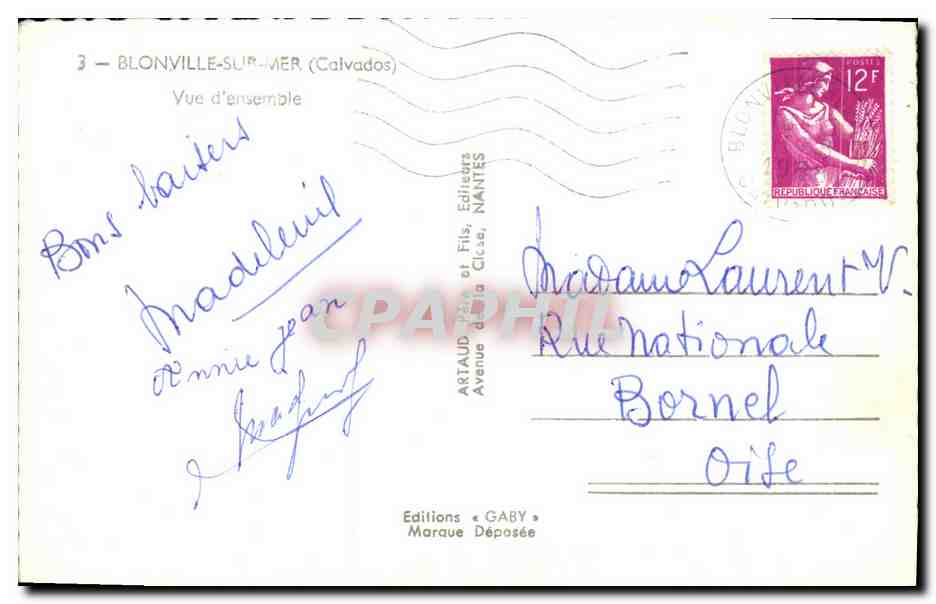 3 — BLONVILLE-SUR-MER (Calvados)
Vue d'ensemble
Bons baisers
Madeleine
Annie Jean
ARTAUD Père et Fils, Editeurs
Avenue de la Close, NANTES
POSTES
12F
REPUBLIQUE FRANÇAISE
BLONV
Madame Laurent V.
Rue Nationale
Bornel
Oise
CPAPHIL
Editions « GABY »
Marque Déposée